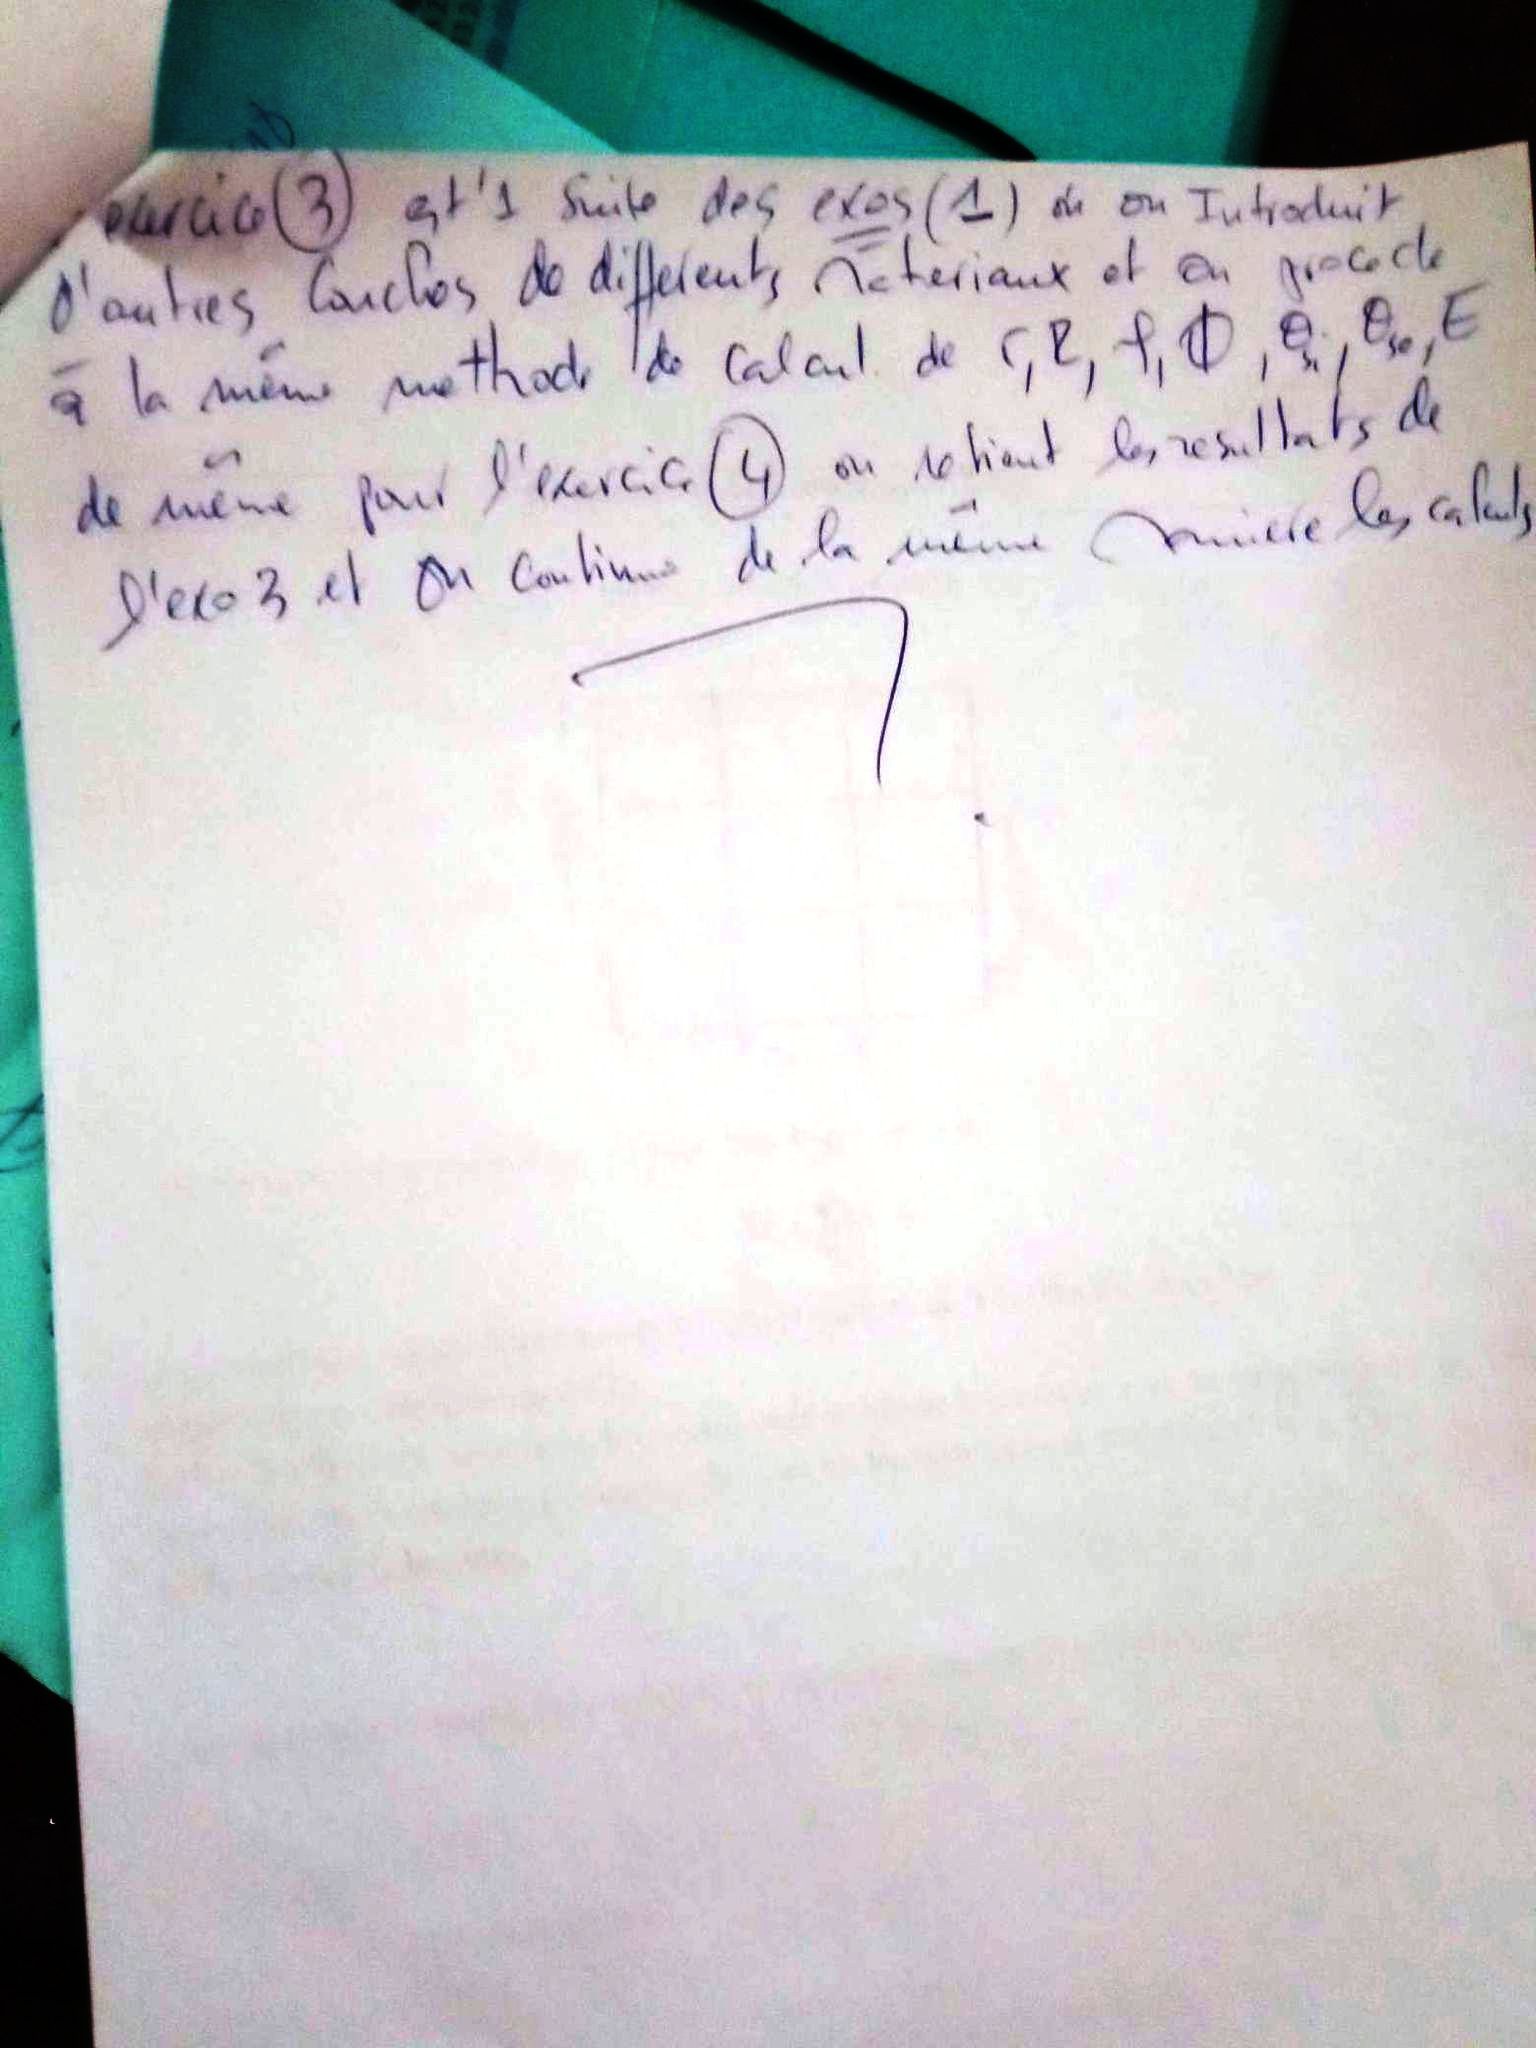 exercice (3) est 1 suite des exos (1) où on Introduit
d'autres couches de differents materiaux et on procede
à la même methode de calcul de r, R, φ, Φ, θsi, θse, E
de même pour l'exercice (4) on retient les resultats de
l'exo 3 et on continue de la même maniere les calculs